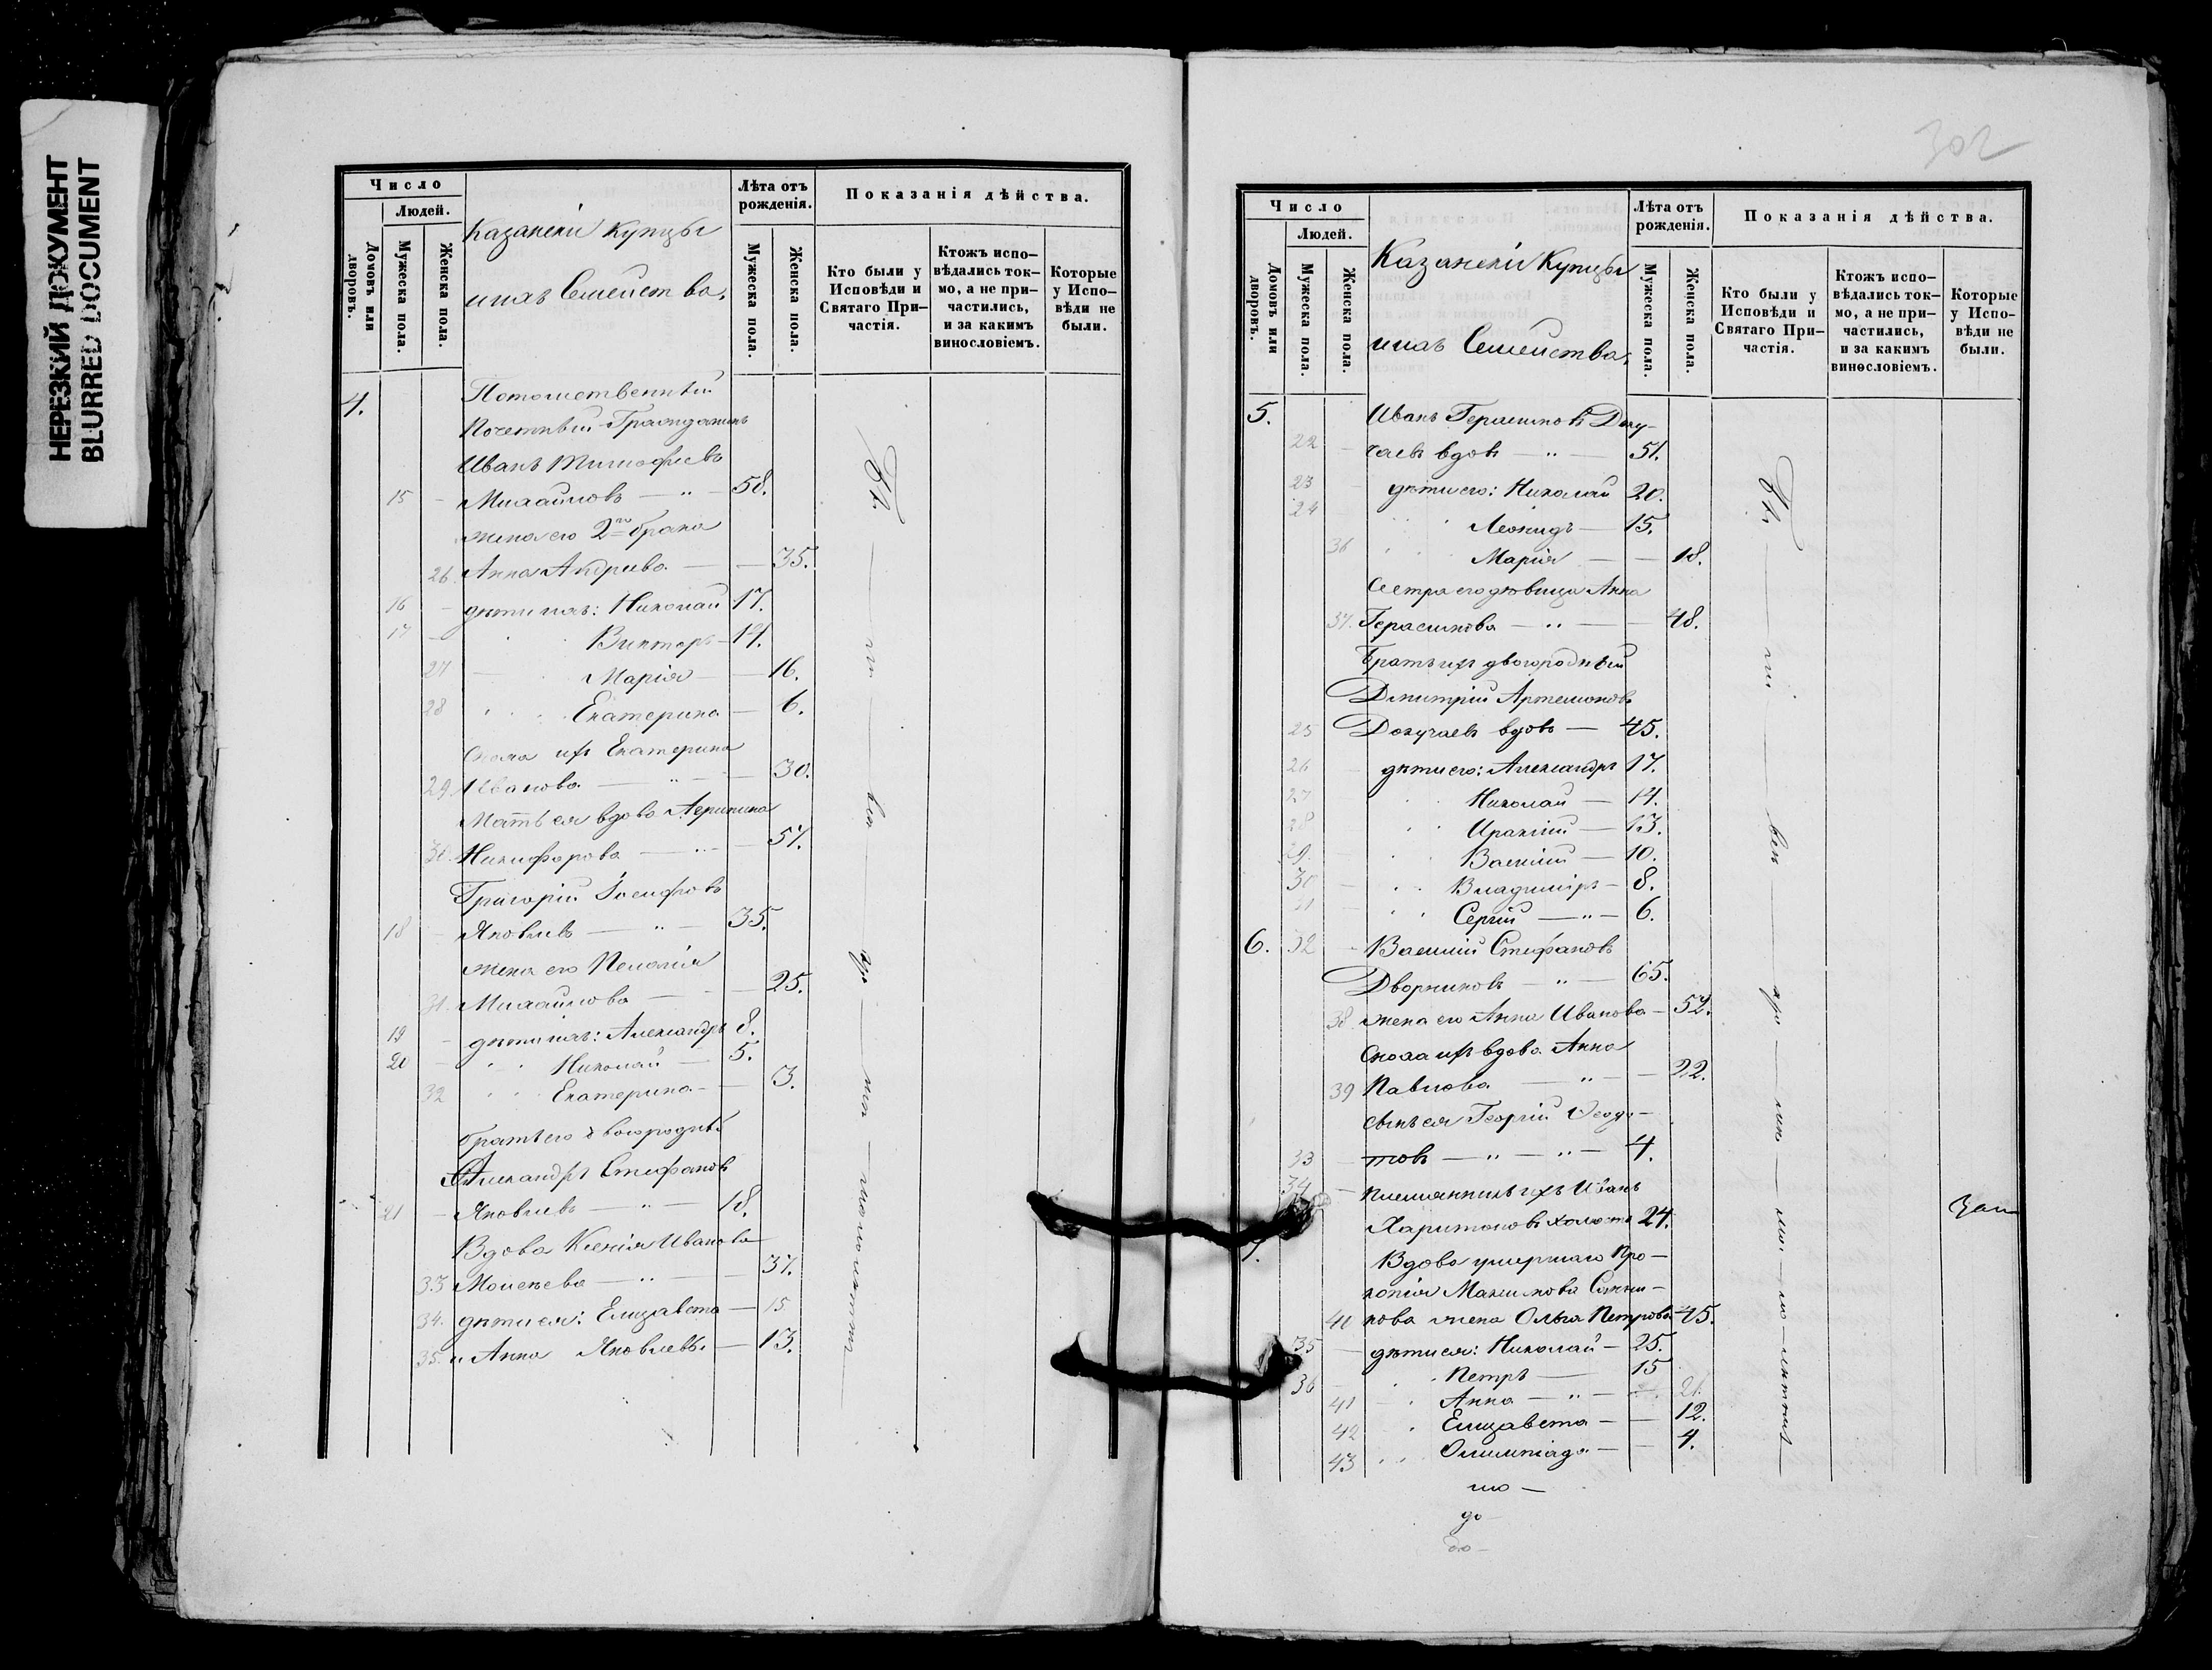 НЕРЕЗКИЙ ДОКУМЕНТ
BLURRED DOCUMENT
Число
Людей.
Домовъ или дворовъ.
Мужеска пола.
Женска пола.
Казанскіи Купцы
и ихъ Семейства,
Лѣта отъ рожденія.
Мужеска пола.
Женска пола.
Показанія дѣйства.
Кто были у Исповѣди и Святаго При-частія.
Ктожъ испо-вѣдались ток-мо, а не при-частились, и за какимъ винословіемъ.
Которые у Испо-вѣди не были.
4. Потомственный
Почетный Гражданинъ
Иванъ Тимофѣевъ
15 - Михайловъ — " — 58.
жена его 2го брака
26. Анна Андреева — — 35.
16 - дѣти ихъ: Николай 17.
17 - Викторъ — 14.
27 Марія — — 16.
28 Екатерина — 6.
Сноха ихъ Екатерина
29 Иванова — " — — 30.
Мать ея вдова
30. Никифорова — " — — 57.
Григорій Іосифовъ
18 - Яковлевъ — " — 35.
жена его Пелагія
31. Михайлова — — — 25.
19 - дѣти ихъ: Александръ 8.
20 - Николай — 5.
32 Екатерина — — 3.
Братъ его двоюродный
Александръ Стефановъ
21 - Яковлевъ — " — 18.
Вдова Ксенія Иванова
33 Моисеева — " — — 37.
34. дѣти ея: Елизавета — 15
35. и Анна Яковлевы. — 13.
Бы — ли — въ — но
302
Число
Людей.
Домовъ или дворовъ.
Мужеска пола.
Женска пола.
Казанскіи Купцы
и ихъ Семейства,
Лѣта отъ рожденія.
Мужеска пола.
Женска пола.
Показанія дѣйства.
Кто были у Исповѣди и Святаго При-частія.
Ктожъ испо-вѣдались ток-мо, а не при-частились, и за какимъ винословіемъ.
Которые у Испо-вѣди не были.
5. Иванъ Герасимовъ Доку-
22 - чаевъ вдовъ — " — 51.
23 - дѣти его: Николай 20.
24 Леонидъ — 15.
36 Марія — — 18.
Сестра его дѣвица Анна
37. Герасимова — " — — 48.
Братъ ихъ двоюродный
Димитрій Артемоновъ
25 Докучаевъ вдовъ — 45.
26 - дѣти его: Александръ 17.
27 Николай — 14.
28 Ираклій — 13.
29. Василій — 10.
30 - Владиміръ — 8.
31 - Сергій — " — 6.
6. 32 - Василій Стефановъ
Дворниковъ — " — 65.
38 жена его Анна Иванова — 52.
Сноха ихъ вдова Анна
39 Павлова — " — — 22.
сынъ ея Георгій Ѳеодо-
33 - товъ — " — " — 4.
34 - Племянникъ ихъ Иванъ
Харитоновъ холостъ 24.
7. Вдова умершаго Про-
копія Максимова
40 кова жена Ольга Петрова 45.
35 - дѣти ея: Николай — 25.
36 - Петръ — 15
41 Анна — " — — 21.
42 Елизавета — — 12.
43 Олимпіада — — 4.
Бы — ли — въ